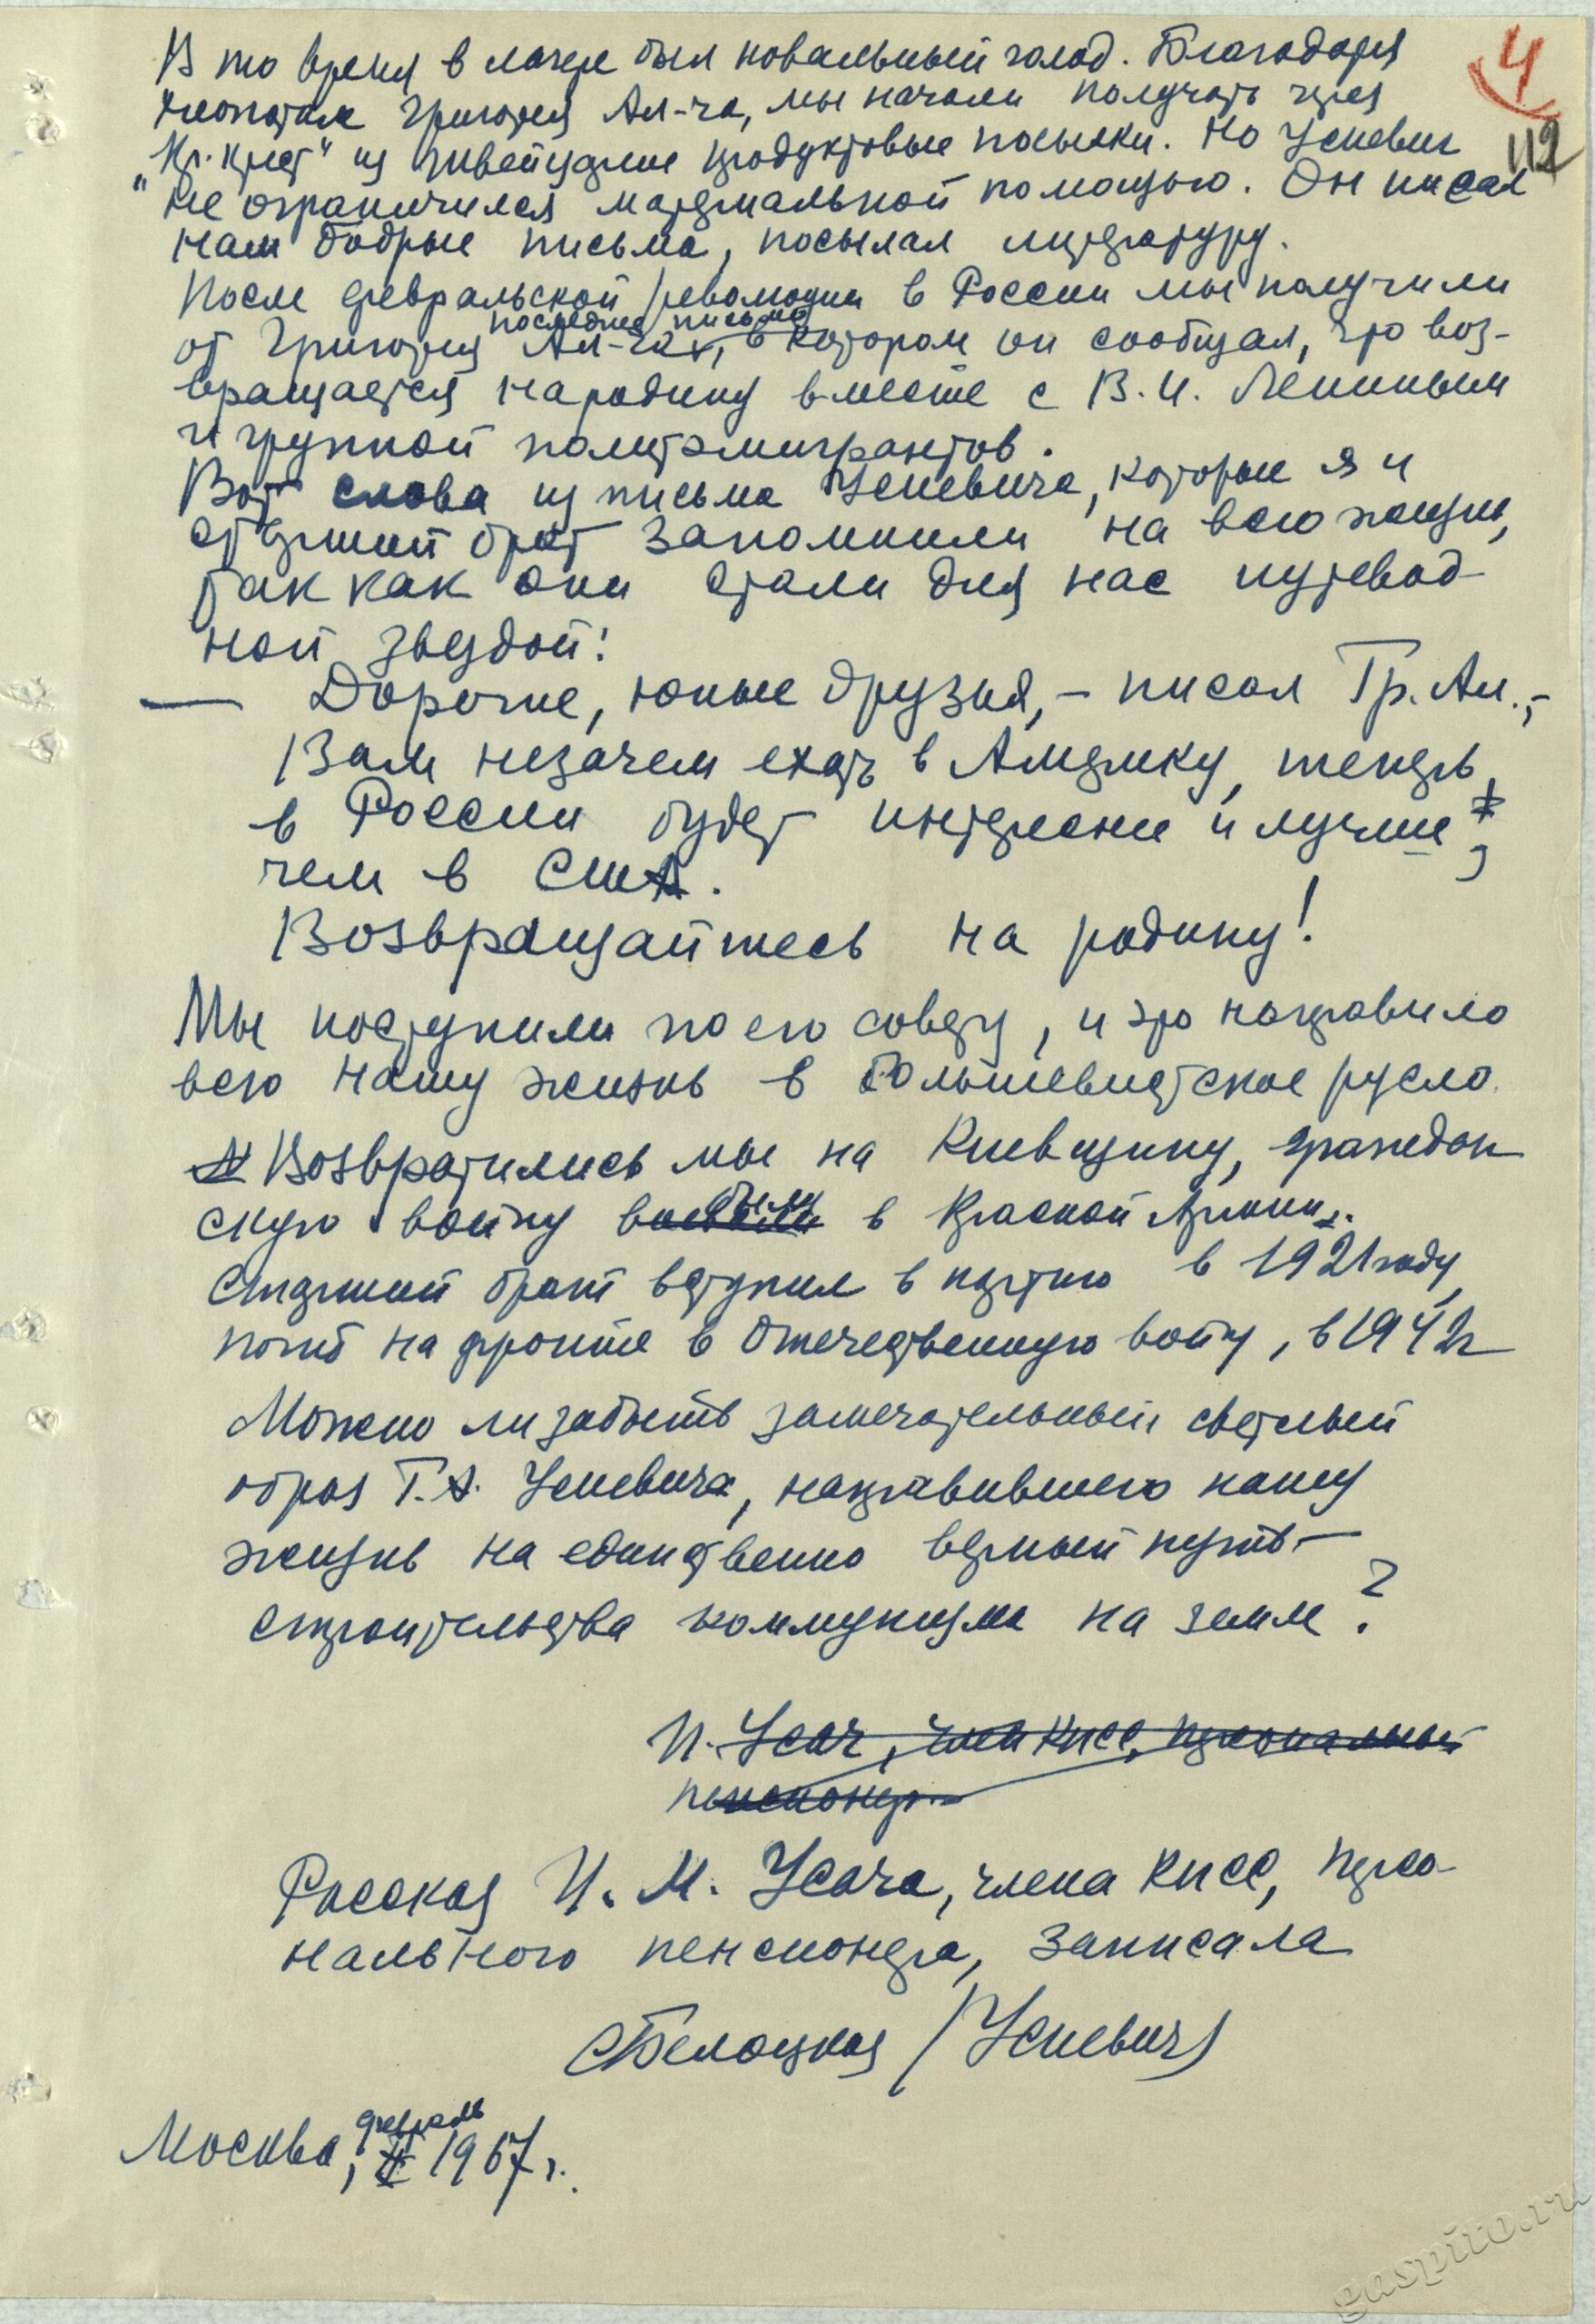 4
112
В то время в лагере был повальный голод. Благодаря
хлопотам Григория Ал-ча, мы начали получать через
"Кр. Крест" из Швейцарии продуктовые посылки. Но Усиевич
не ограничился материальной помощью. Он писал
нам бодрые письма, посылал литературу.
После февральской революции в России мы получили
последнее письмо
от Григория Ал-ча, в котором он сообщал, что воз-
вращается на родину вместе с В.И. Лениным
и группой политэмигрантов.
Вот слова из письма Усиевича, которые я и
старший брат запомнили на всю жизнь,
так как они стали для нас путевод-
ной звездой:
— Дорогие, юные друзья, – писал Гр. Ал., –
Вам незачем ехать в Америку, теперь
в России будет интересней и лучше,
чем в США.
Возвращайтесь на родину!
Мы поступили по его совету, и это направило
всю нашу жизнь в большевистское русло.
Возвратились мы на Киевщину, граждан
были
скую войну воевали в Красной Армии.
Старший брат вступил в партию в 1921 году,
погиб на фронте в Отечественную войну, в 1942г
Можно ли забыть замечательный светлый
образ Г.А. Усиевича, направившего нашу
жизнь на единственно верный путь –
строительства коммунизма на земле?
И. Усач, член КПСС, персональный
пенсионер.
Рассказ И. М. Усача, члена КПСС, персо-
нального пенсионера, записала
СБелоцкая /Усиевич/
февраль
Москва, II 1967г.
gaspito.ru